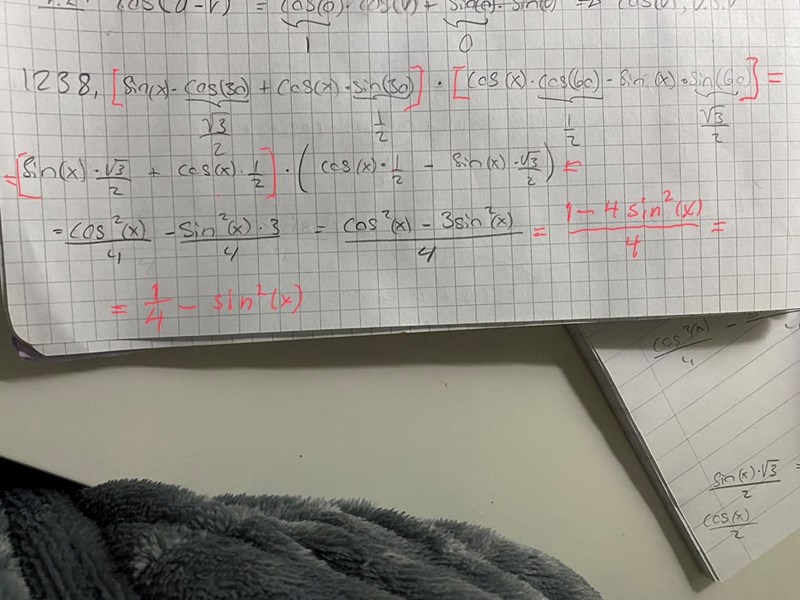 cos(u-v) = cos(0) · cos(v) + sin(0) · sin(v)
1 0
1238, [sin(x) · cos(30) + cos(x) · sin(30)] · [cos(x) · cos(60) - sin(x) · sin(60)] =
√3/2 1/2 1/2 √3/2
=[sin(x) · √3/2 + cos(x) · 1/2] · (cos(x) · 1/2 - sin(x) · √3/2) =
= cos²(x)/4 - sin²(x) · 3/4 = cos²(x) - 3sin²(x)/4 = 1 - 4 sin²(x)/4 =
= 1/4 - sin²(x)
cos²(x)/4 -
sin(x) · √3/2 =
cos(x)/2